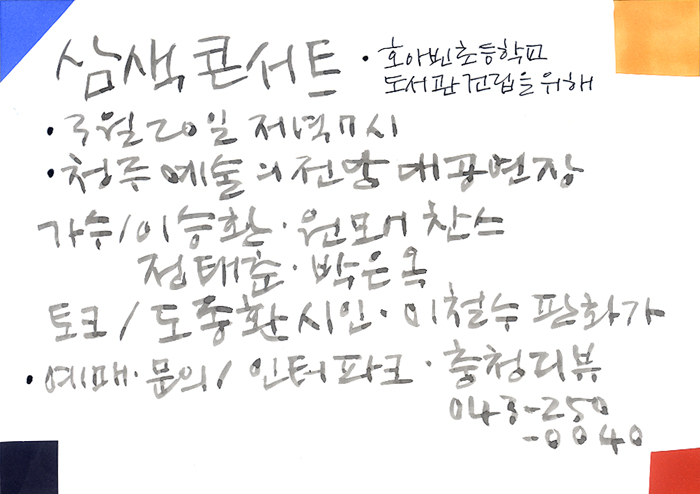 삼색콘서트 · 호아빈초등학교
도서관건립을 위해
· 20일 저녁7시
· 청주 예술의전당 대공연장
가수/이승환·원모어찬스
정태춘·박은옥
토크/도종환시인·이철수 판화가
· 예매·문의/인터파크·충청리뷰
043-250
-0040